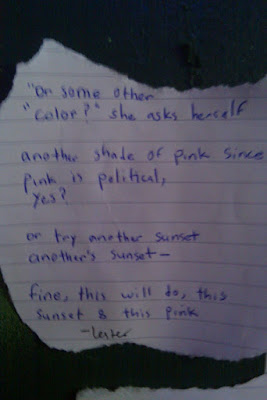 "Or some other
"color?" she asks herself
another shade of pink since
pink is political,
yes?
or try another sunset
another's sunset—
fine, this will do, this
sunset & this pink
-Lester